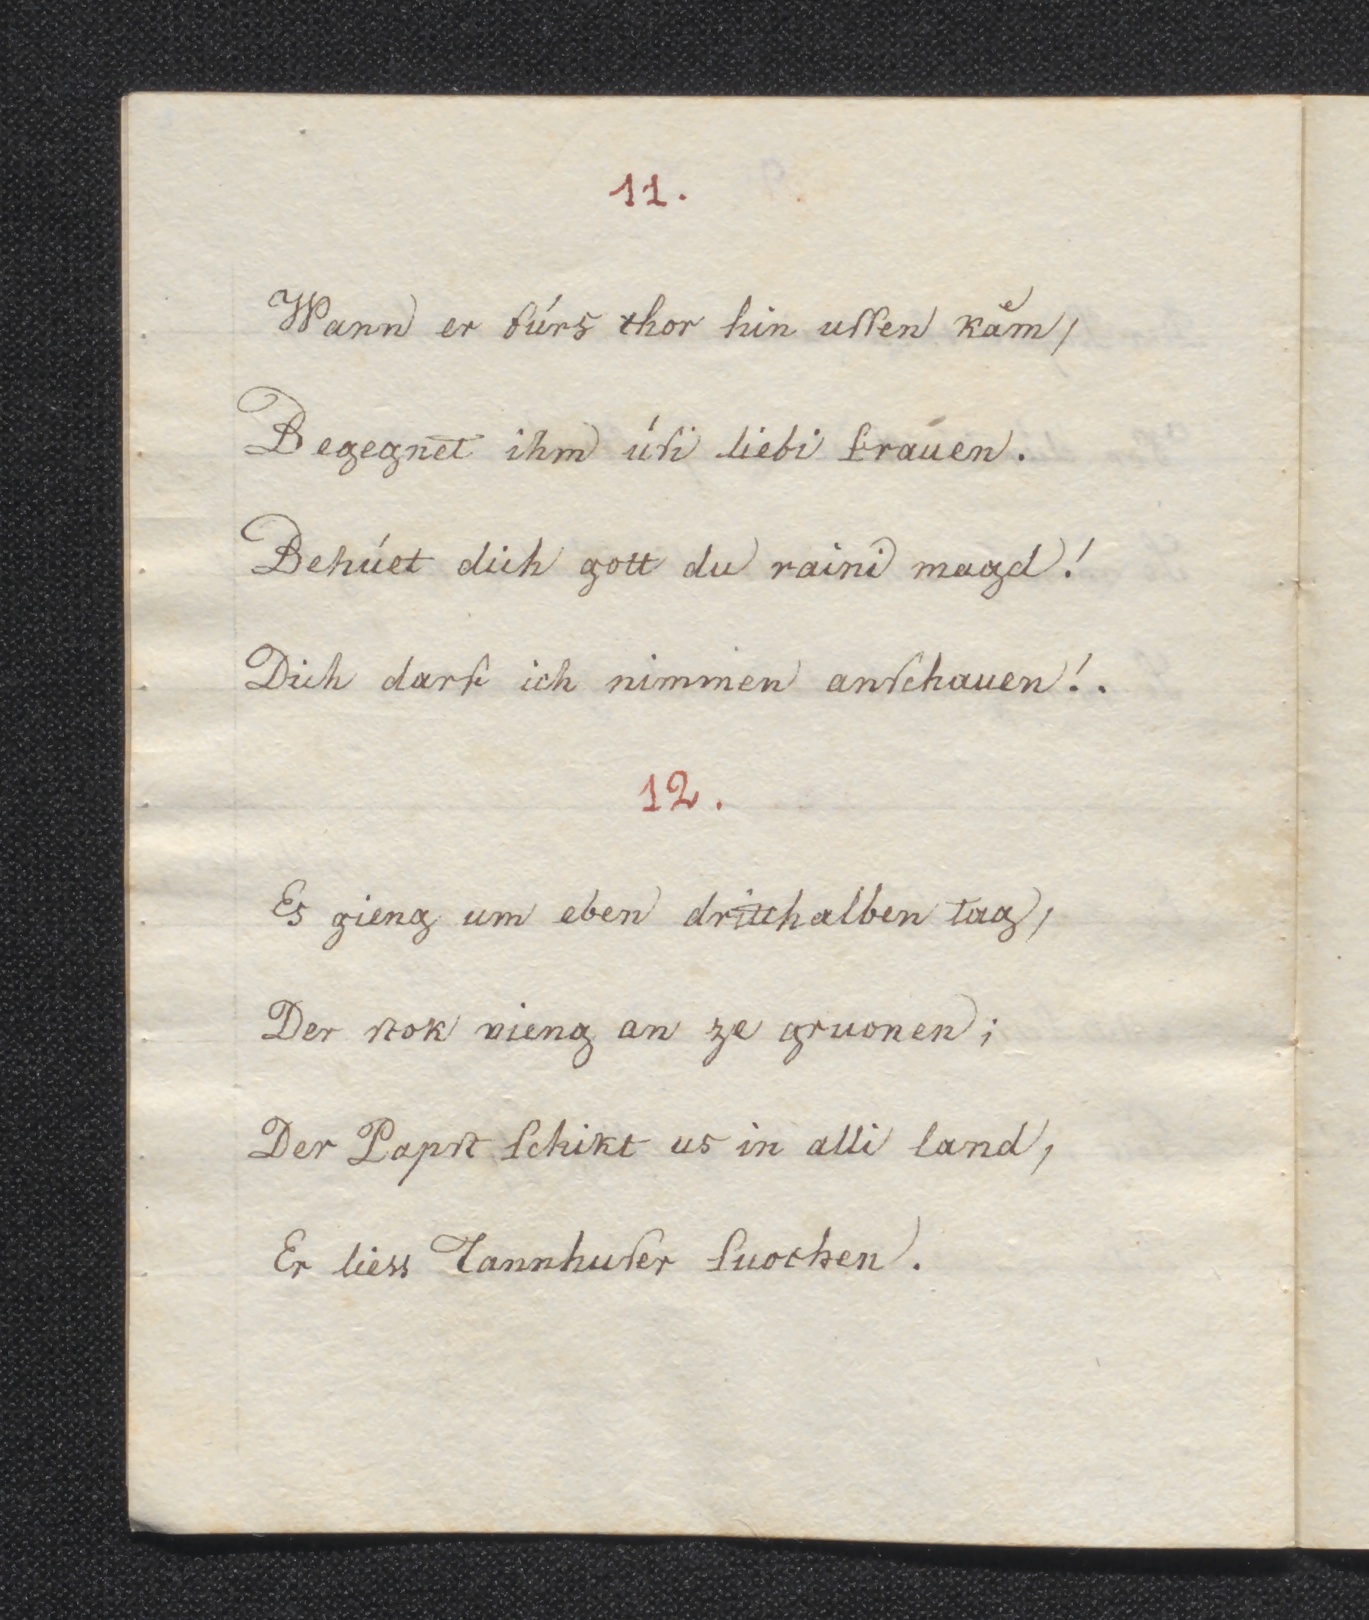 11.
Wann er fúrs thor hin uſſen kåm,
Begegnet ihm úſi liebi frauen.
Behúet dich gott du raini magd!
Dich darf ich nimmen anſchauen!.
12.
Es gieng um eben dritthalben tag,
Der ſtok vieng an ze gruonen;
Der Papſt ſchikt us in alli land,
Er liess Tannhuſer ſuochen.